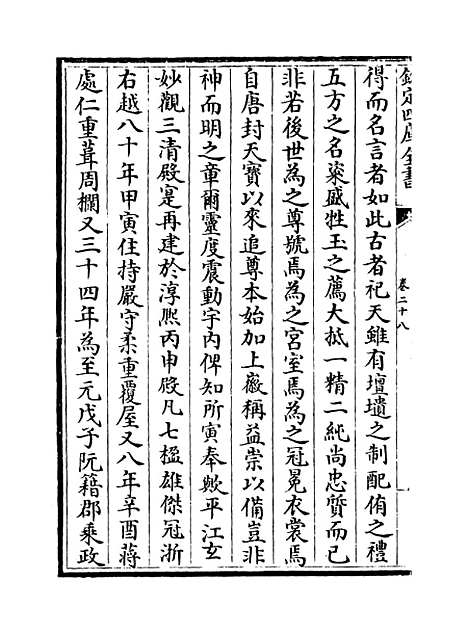 欽定四庫全書
卷二十八
得而名言者如此古者祀天雖有壇壝之制配侑之禮
五方之名粢盛牲玉之薦大抵一精二純尚忠質而已
非若後世為之尊號焉為之宮室焉為之冠冕衣裳焉
自唐封天寶以來追尊本始加上徽稱益崇以備豈非
神而明之童爾靈度震動宇內俾知所寅奉歟平江玄
妙觀三清殿寔再建於淳熙丙申殿凡七楹雄傑冠浙
右越八十年甲寅住持嚴守柔重覆屋又八年辛酉蔣
處仁重葺周欄又三十四年為至元戊子阮籍郡乘政